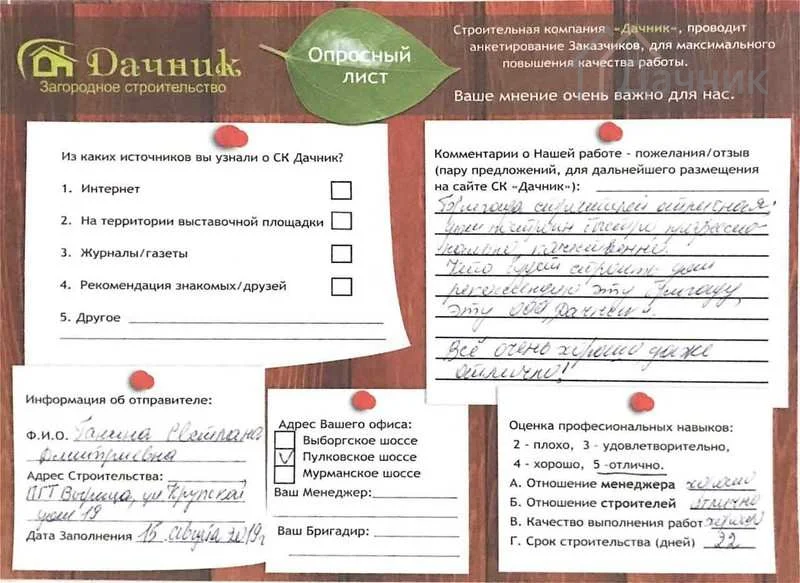 Дачник
Загородное строительство
Опросный
лист
Строительная компания «Дачник», проводит
анкетирование Заказчиков, для максимального
повышения качества работы.
Дачник
Ваше мнение очень важно для нас.
Из каких источников вы узнали о СК Дачник?
1. Интернет
2. На территории выставочной площадки
3. Журналы/газеты
4. Рекомендация знакомых/друзей
5. Другое
Комментарии о Нашей работе - пожелания/отзыв
(пару предложений, для дальнейшего размещения
на сайте СК «Дачник»):
Бригада строителей отличная,
дом построен быстро професси-
онально качественно.
Кто будет строить дом
рекомендую эту бригаду,
эту ООО "Дачник".
Всё очень хорошо даже
отлично!
Информация об отправителе:
Ф.И.О. Ганина Светлана
Дмитриевна
Адрес Строительства:
ПГТ Вырица, ул Крупской
дом 19
Дата Заполнения 15 Августа 2019г
Адрес Вашего офиса:
Выборгское шоссе
V Пулковское шоссе
Мурманское шоссе
Ваш Менеджер:
Ваш Бригадир:
Оценка профессиональных навыков:
2 - плохо, 3 - удовлетворительно,
4 - хорошо, 5 -отлично.
А. Отношение менеджера хорошо
Б. Отношение строителей отлично
В. Качество выполнения работ хорошо
Г. Срок строительства (дней) 22